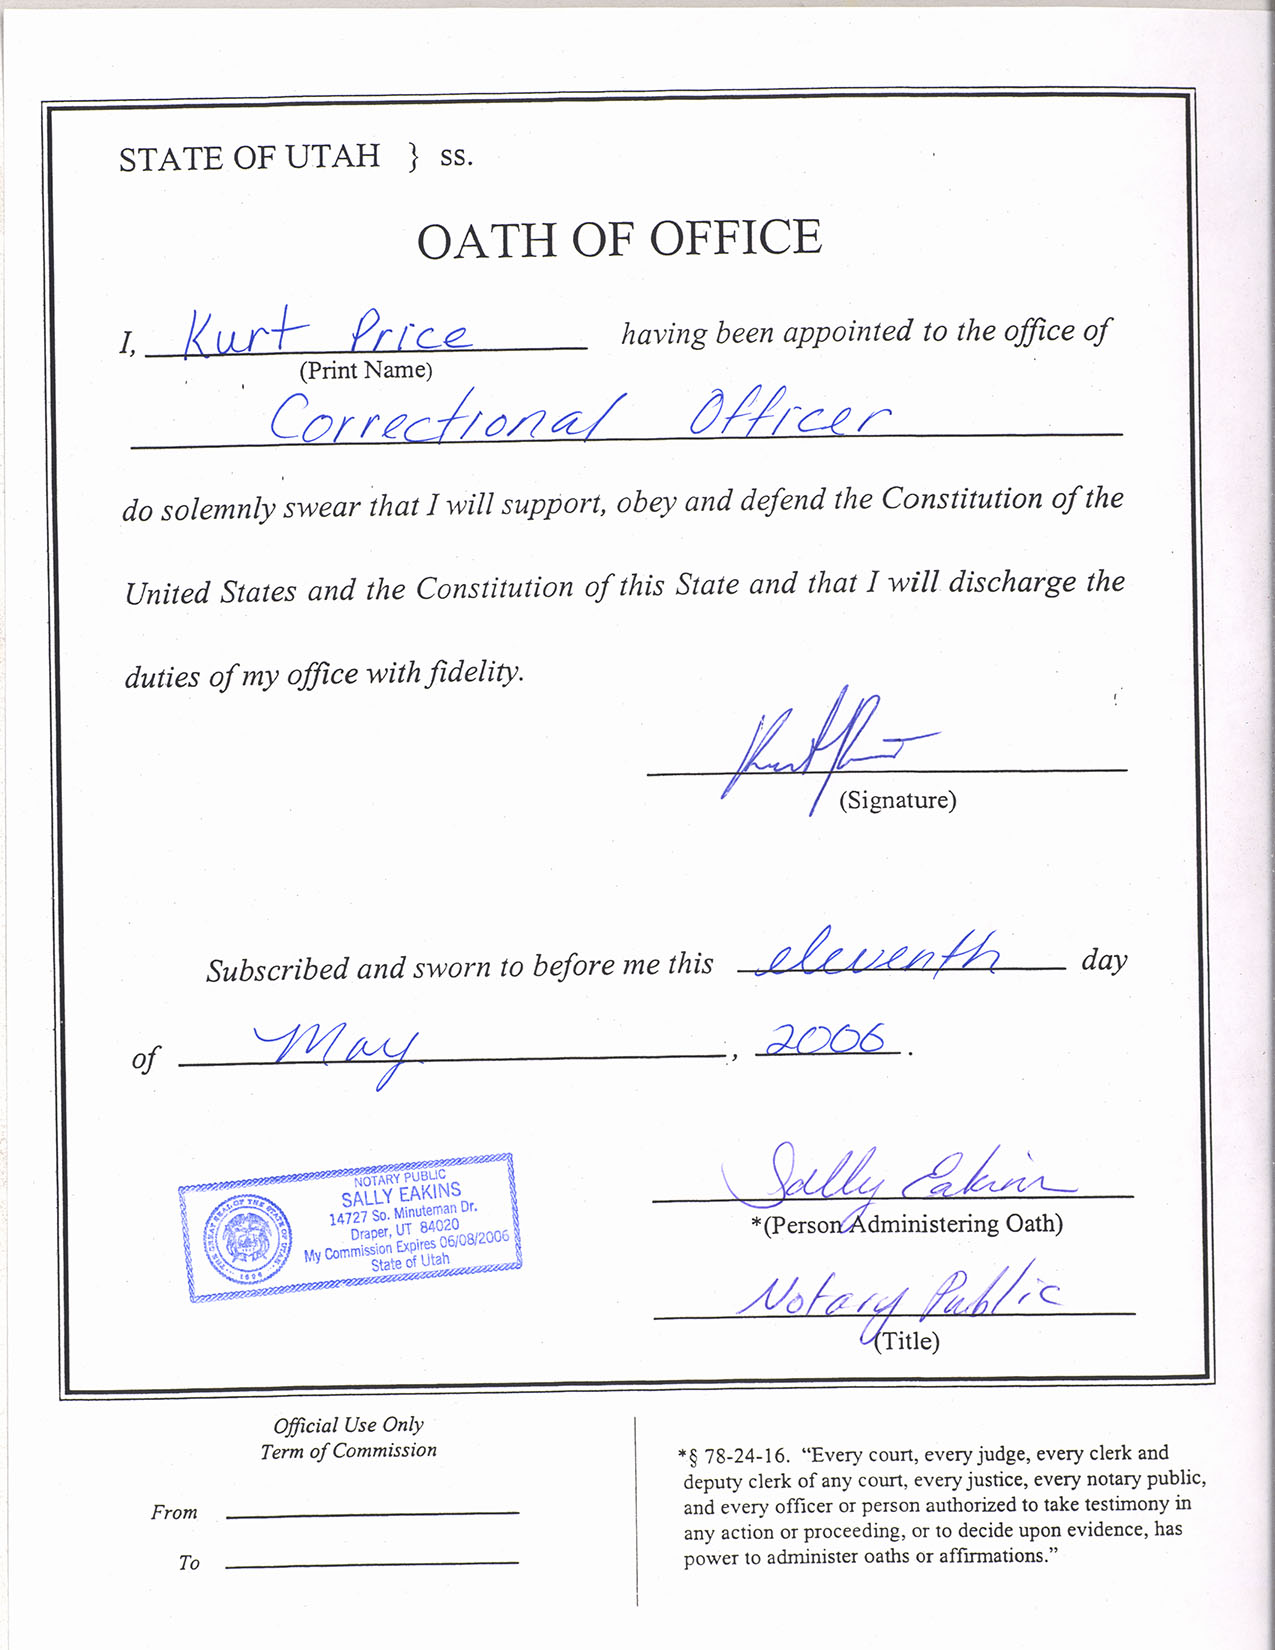 STATE OF UTAH } ss.
OATH OF OFFICE
I, Kurt Price having been appointed to the office of
(Print Name)
Correctional Officer
do solemnly swear that I will support, obey and defend the Constitution of the
United States and the Constitution of this State and that I will discharge the
duties of my office with fidelity.
Kurt Price
(Signature)
Subscribed and sworn to before me this eleventh day
of May, 2006.
NOTARY PUBLIC
SALLY EAKINS
14727 So. Minuteman Dr.
Draper, UT 84020
My Commission Expires 06/08/2006
State of Utah
THE GREAT SEAL OF THE STATE OF UTAH
1896
Sally Eakins
*(Person Administering Oath)
Notary Public
(Title)
Official Use Only
Term of Commission
From
To
*§ 78-24-16. “Every court, every judge, every clerk and
deputy clerk of any court, every justice, every notary public,
and every officer or person authorized to take testimony in
any action or proceeding, or to decide upon evidence, has
power to administer oaths or affirmations.”